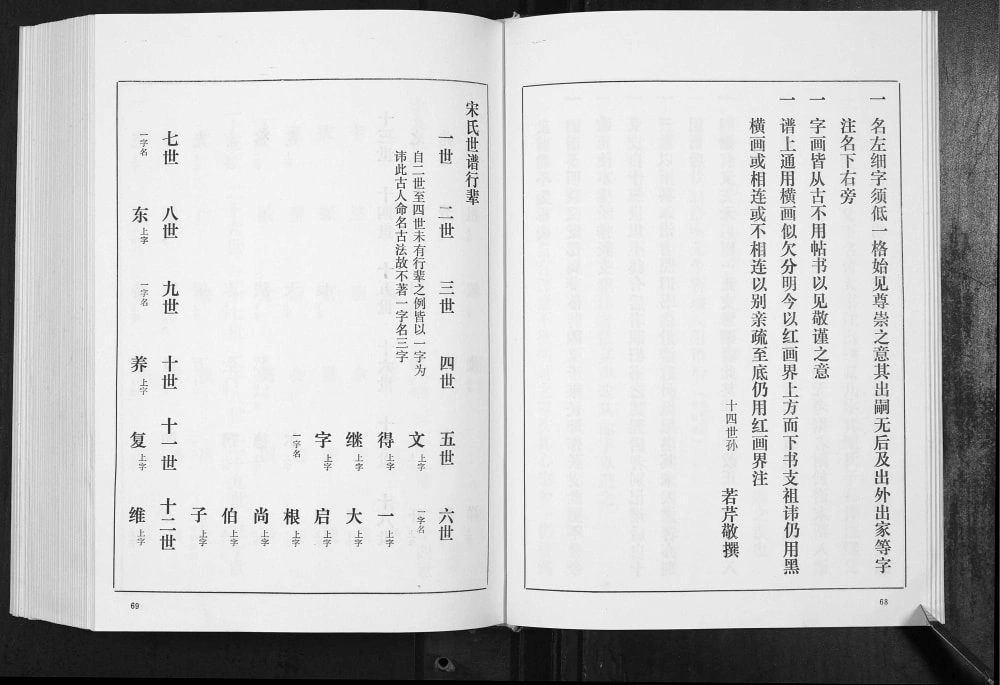 一 名左细字须低一格始见尊崇之意其出嗣无后及出外出家等字
注名下右旁
一 字画皆从古不用帖书以见敬谨之意
一 谱上通用横画似欠分明今以红画界上方而下书支祖讳仍用黑
横画或相连或不相连以别亲疏至底仍用红画界注
十四世孙 若芹敬撰
68
宋氏世谱行辈
一世 二世 三世 四世 五世 六世
自二世至四世未有行辈之例皆以一字为
讳此古人命名古法故不著一字名三字
文上字 一字名
得上字 一上字
继上字 大上字
字上字 启上字
一字名 根上字
尚上字
伯上字
子上字
七世 八世 九世 十世 十一世 十二世
一字名 东上字 一字名 养上字 复上字 维上字
69